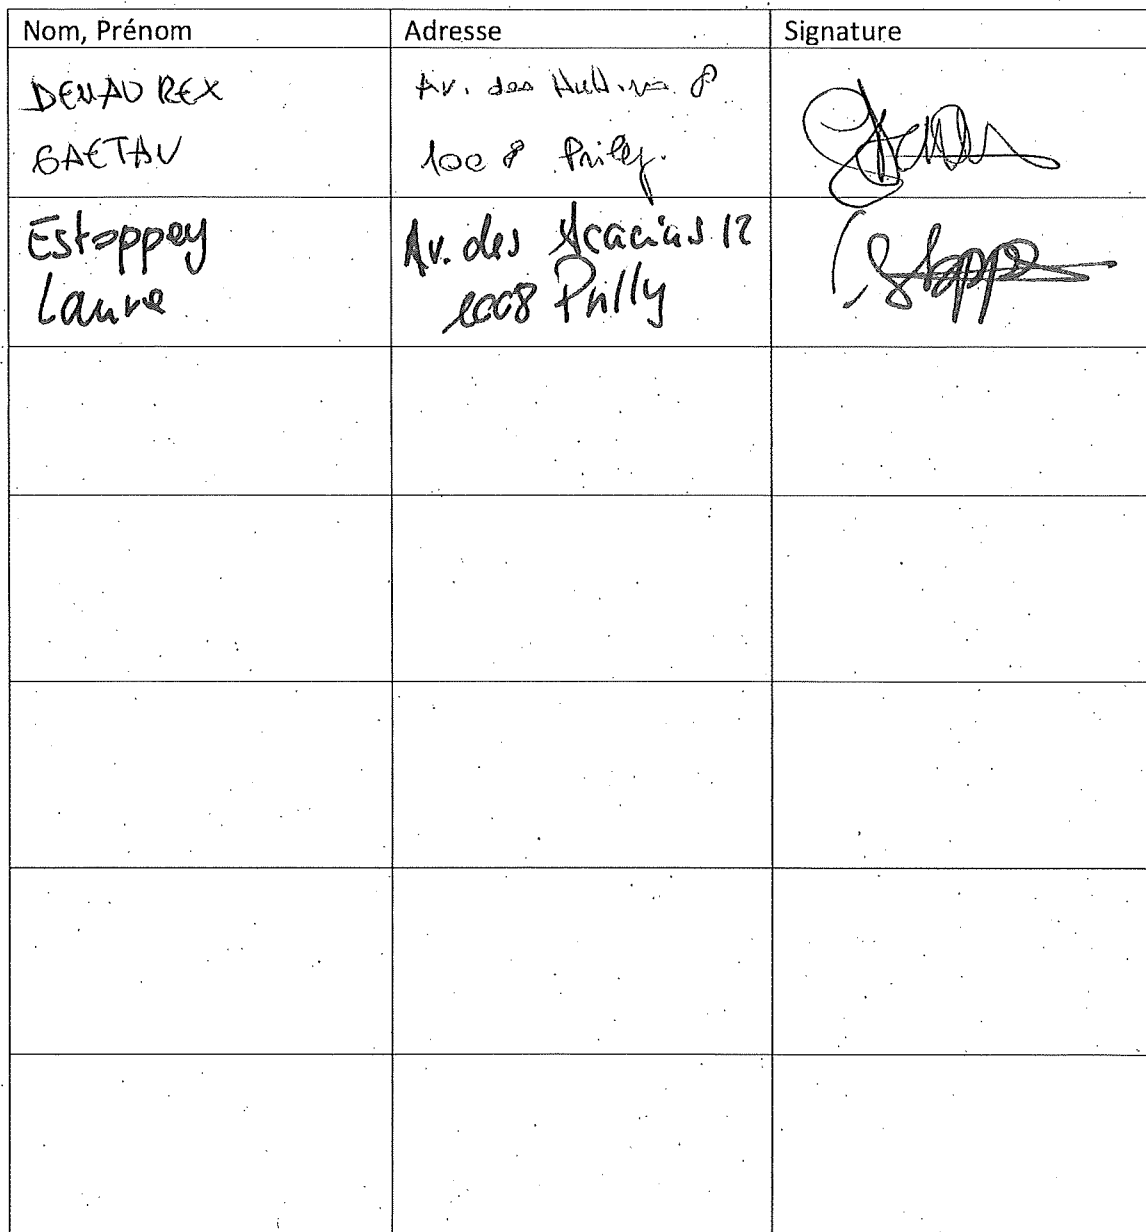 Nom, Prénom
Adresse
Signature
DENAUREX
GAETAN
Av. des 8
1008 Prilly.
Estoppey
Laure
Av. des Acacias 12
1008 Prilly
Estoppey